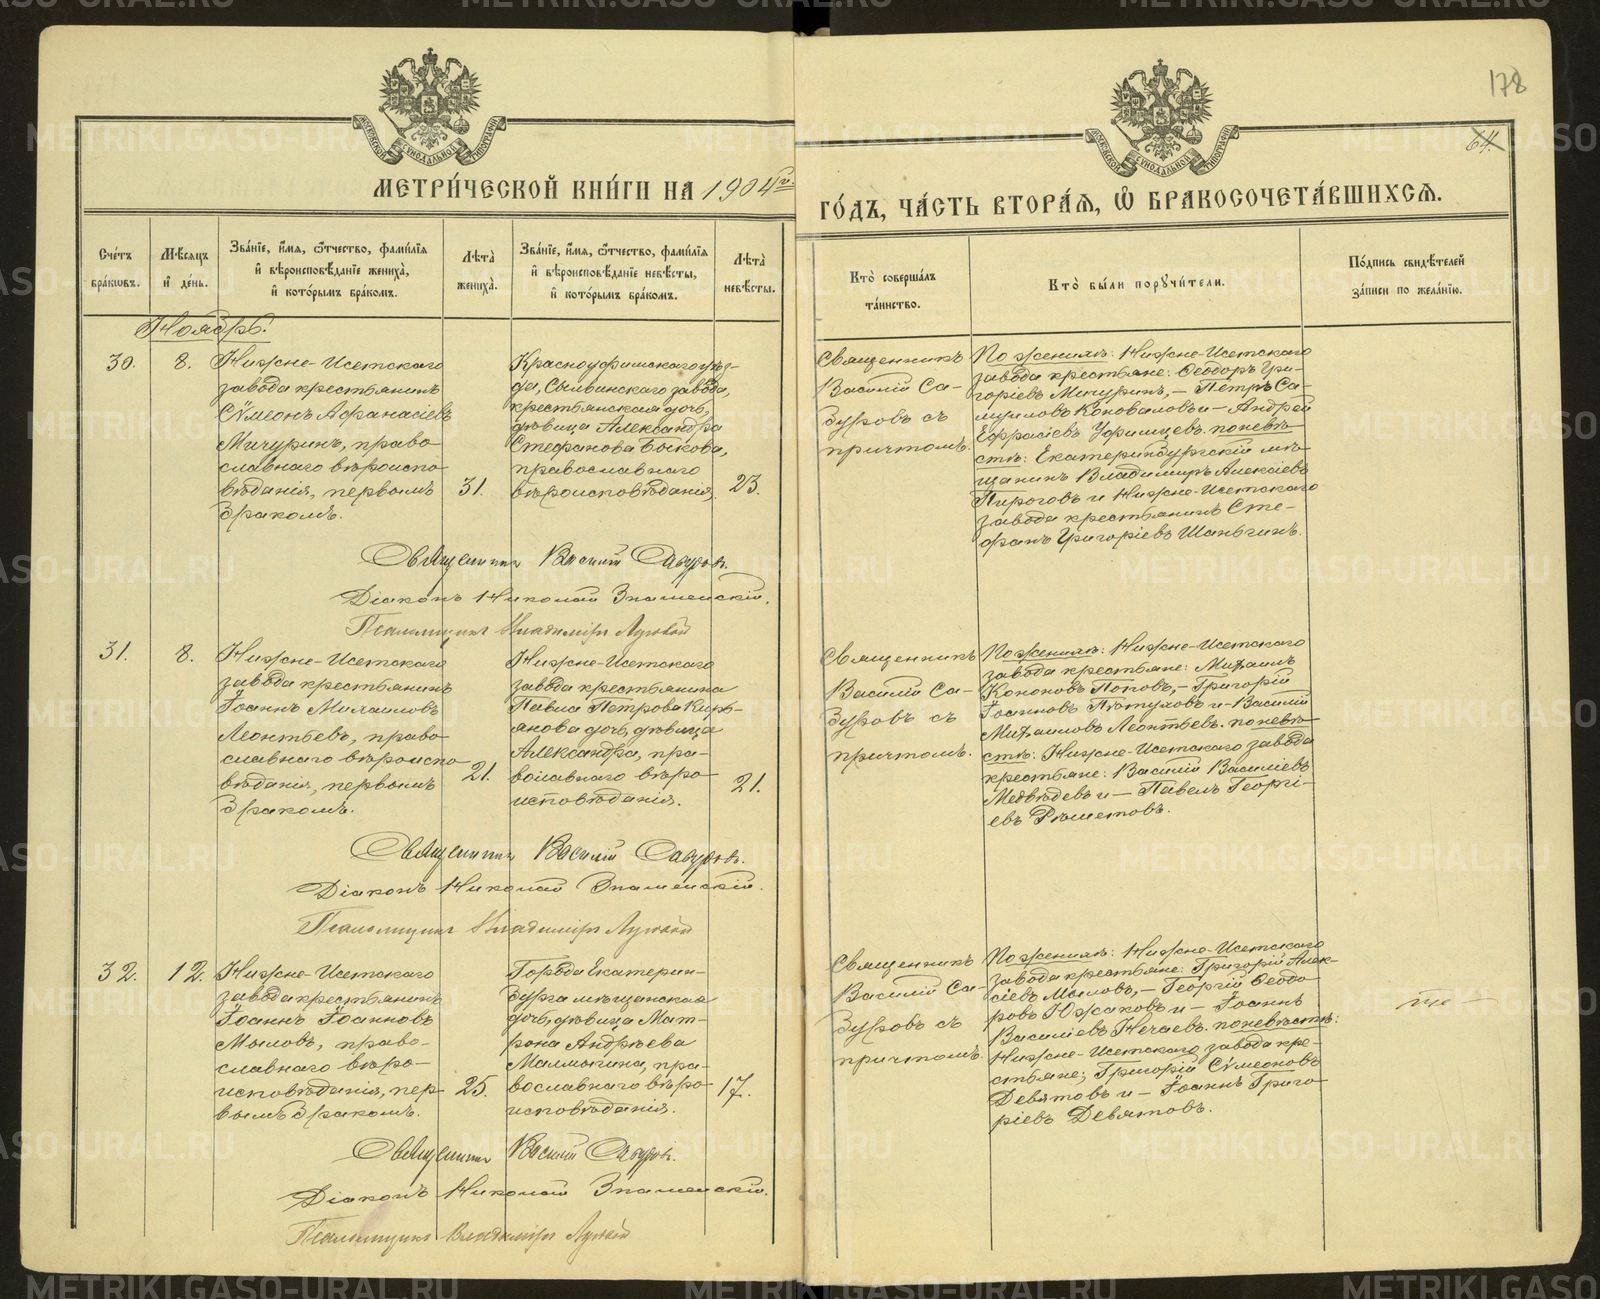 МЕТРИ́ЧЕСКОЙ КНИ́ГИ НА 1904 г.
ГО́ДЪ, ЧА́СТЬ ВТОРА́Я, Ѡ БРАКОСОЧЕТА́ВШИХСЯ.
178
64.
МОСКОВСКОЙ СѴНОДАЛЬНОЙ ТИПОГРАФІИ
МОСКОВСКОЙ СѴНОДАЛЬНОЙ ТИПОГРАФІИ
Сче́тъ
бра́ковъ.
Мѣ́сяцъ
и҆ де́нь.
Зва́нїе, и҆́мя, ѻ҆́тчество, фами́лїя
и҆ вѣроисповѣ́данїе жениха̀,
и҆ кото́рымъ бра́комъ.
Лѣ́та
жениха̀.
Зва́нїе, и҆́мя, ѻ҆́тчество, фами́лїя
и҆ вѣроисповѣ́данїе невѣ́сты,
и҆ кото́рымъ бра́комъ.
Лѣ́та
невѣ́сты.
Кто̀ соверша́лъ
та́инство.
Кто̀ бы́ли порꙋчи́тели.
По́дпись свидѣ́телей
за́писи по жела́нїю.
Ноябрь.
30.
8.
Нижне-Исетскаго
завода крестьянинъ
Сѵмеонъ Афанасіевъ
Мичуринъ, право-
славнаго вѣроиспо-
вѣданія, первымъ
бракомъ.
31.
Красноуфимскаго уѣз-
да, Сылвинскаго завода,
крестьянская дочь,
дѣвица Александра
Стефанова Быкова,
православнаго
вѣроисповѣданія.
23.
Священникъ
Василій Са-
буровъ съ
причтомъ.
По женихѣ: Нижне-Исетскаго
завода крестьяне: Ѳеодоръ Гри-
горіевъ Мичуринъ, – Петръ Са-
муиловъ Коноваловъ и – Андрей
Ефрасіевъ Уфимцевъ. по невѣ-
стѣ: Екатеринбургскій мѣ-
щанинъ Владимиръ Алексіевъ
Пироговъ и Нижне-Исетскаго
завода крестьянинъ Сте-
фанъ Григоріевъ Шаньгинъ.
Священникъ Василій Сабуровъ.
Діаконъ Николай Знаменскій.
Псаломщикъ Владиміръ Луговой
31.
8.
Нижне-Исетскаго
завода крестьянинъ
Іоаннъ Михаиловъ
Леонтьевъ, право-
славнаго вѣроиспо-
вѣданія, первымъ
бракомъ.
21.
Нижне-Исетскаго
завода крестьянина
Павла Петрова Кирь-
янова дочь, дѣвица
Александра, пра-
вославнаго вѣро-
исповѣданія.
21.
Священникъ
Василій Са-
буровъ съ
причтомъ.
По женихѣ: Нижне-Исетскаго
завода крестьяне: Михаилъ
Кононовъ Поповъ, – Григорій
Іоанновъ Пѣтуховъ и – Василій
Михаиловъ Леонтьевъ. по невѣ-
стѣ: Нижне-Исетскаго завода
крестьяне: Василій Василіевъ
Медвѣдевъ и – Павелъ Георгі-
евъ Рѣшетовъ.
Священникъ Василій Сабуровъ.
Діаконъ Николай Знаменскій.
Псаломщикъ Владиміръ Луговой
32.
12.
Нижне-Исетскаго
завода крестьянинъ
Іоаннъ Іоанновъ
Мыловъ, право-
славнаго вѣро-
исповѣданія, пер-
вымъ бракомъ.
25.
Города Екатерин-
бурга мѣщанская
дочь, дѣвица Мат-
рона Андрѣева
Малмыгина, пра-
вославнаго вѣро-
исповѣданія.
17.
Священникъ
Василій Са-
буровъ съ
причтомъ.
По женихѣ: Нижне-Исетскаго
завода крестьяне: Григорій Алек-
сіевъ Мыловъ, – Георгій Ѳеодо-
ровъ Южаковъ и – Іоаннъ
Василіевъ Нечаевъ. по невѣстѣ:
Нижне-Исетскаго завода кре-
стьяне; Григорій Сѵмеоновъ
Девятовъ и – Іоаннъ Григо-
ріевъ Девятовъ.
Священникъ Василій Сабуровъ.
Діаконъ Николай Знаменскій.
Псаломщикъ Владиміръ Луговой